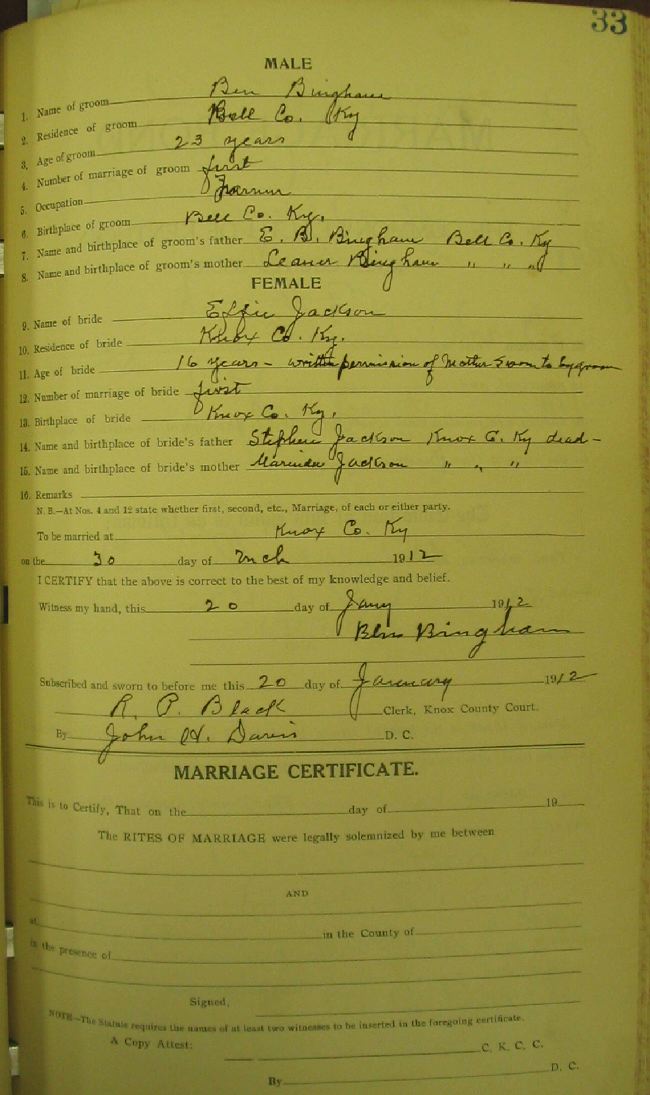 33
MALE
1. Name of groom Ben Bingham
2. Residence of groom Bell Co. Ky
3. Age of groom 23 years
4. Number of marriage of groom first
5. Occupation Farmer
6. Birthplace of groom Bell Co. Ky.
7. Name and birthplace of groom's father E. B. Bingham Bell Co. Ky
8. Name and birthplace of groom's mother Leaner Bingham " " "
FEMALE
9. Name of bride Effie Jackson
10. Residence of bride Knox Co. Ky.
11. Age of bride 16 years - written permission of Mother Sworn to by groom
12. Number of marriage of bride first
13. Birthplace of bride Knox Co. Ky.
14. Name and birthplace of bride's father Stephen Jackson Knox C. Ky dead -
15. Name and birthplace of bride's mother Marinda Jackson " " "
16. Remarks
N. B.—At Nos. 4 and 12 state whether first, second, etc., Marriage, of each or either party.
To be married at Knox Co. Ky
on the 30 day of Mch 1912
I CERTIFY that the above is correct to the best of my knowledge and belief.
Witness my hand, this 20 day of Jany 1912
Ben Bingham
Subscribed and sworn to before me this 20 day of January 1912
R. P. Black Clerk, Knox County Court.
By John H. Davis D. C.
MARRIAGE CERTIFICATE.
This is to Certify, That on the day of 19
The RITES OF MARRIAGE were legally solemnized by me between
AND
at in the County of
in the presence of
Signed,
NOTE—The Statute requires the names of at least two witnesses to be inserted in the foregoing certificate.
A Copy Attest: C. K. C. C.
By D. C.